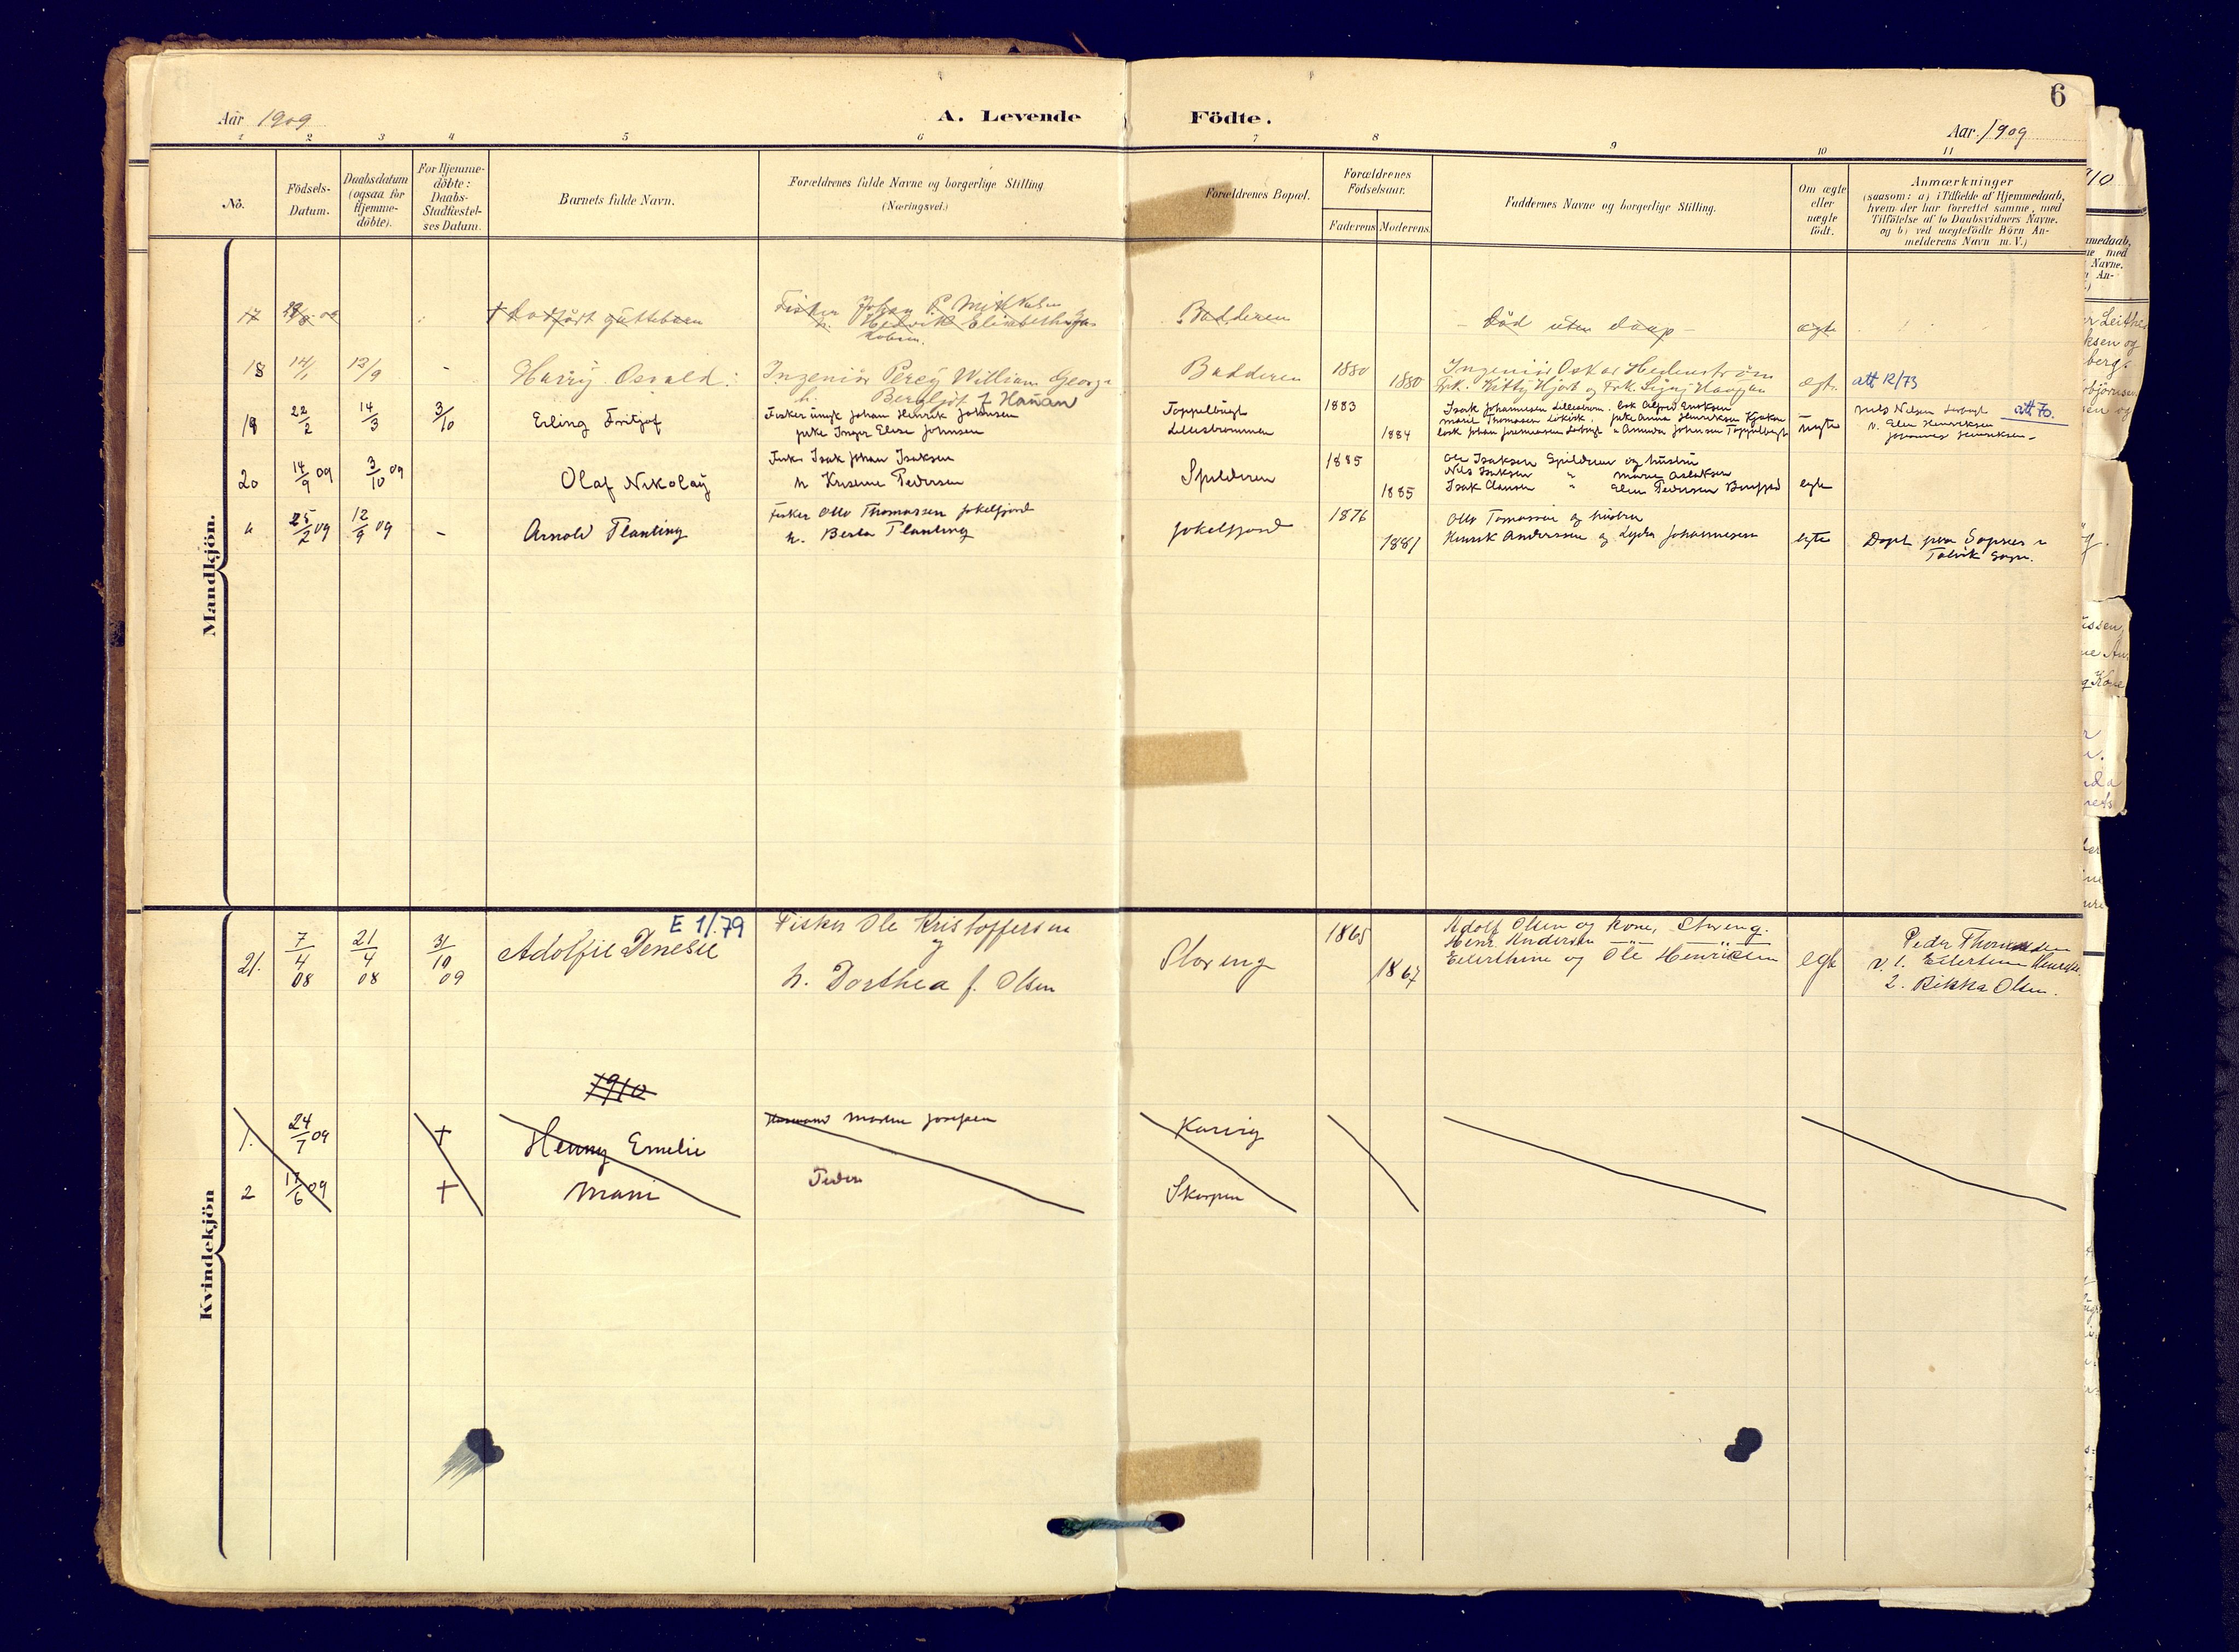 6
Aar 1909
A. Levende Födte.
Aar 1909
1 2 3 4 5 6 7 8 9 10 11
No.
Födsels-
Datum.
Daabsdatum
(ogsaa for
Hjemme-
döbte).
For Hjemme-
döbte:
Daabs-
Stadfæstel-
ses Datum.
Barnets fulde Navn.
Forældrenes fulde Navne og borgerlige Stilling
(Næringsvei.)
Forældrenes Bopæl.
Forældrenes
Födselsaar.
Faderens Moderens
Faddernes Navne og borgerlige Stilling.
Om ægte
eller
uægte
födt.
Anmærkninger
(saasom: a) i Tilfælde af Hjemmedaab,
hvem der har forrettet samme, med
Tilföielse af to Daabsvidners Navne,
og b) ved uægtefödte Börn An-
melderens Navn m. V.)
Mandkjön.
17
† dødfødt guttebarn
Fisker Johan P. Mikkelsen
h. Hedvik Elisabeth
Badderen
død uten daap
ægte
18 14/1 13/9 -
Harry Osvald
Ingeniør Percy William George
h. Bergljot f. Hanan
Badderen
1880
1880
Ingeniør Oskar Hedenstrøm
Frk. Kitty Hjort og Frk. Signy
ægte
att 12/73
19 22/2 14/3 3/10
Erling Fritjof
Fisker ungk Johan Henrik Johnsen
pike Inger Elise Johnsen
Toppelbugt
Lillestrommen
1883
1884
Isak Johannesen Lillestrom. Alfred
Marie Thomasen pike Anna Henriksen
Johan
uegte
Nils Nilsen att 70.
v. Elen Henriksen
Johannes Henriksen
20 14/9 09 3/10 09
Olaf Nikolay
Fisk. Isak Johan Isaksen
h Pedersen
Spilderen
1885
1885
Ole Isaksen Spilderen og hustru
Nils Isaksen " Marie Aslaksen
Isak Clausen " Elen Pedersen
egte
" 25/2 09 12/9 09 -
Arnold Flanting
Fisker Otto Thomassen Jokelfjord
h. Berta Flanting
Jokelfjord
1876
1881
Otto Tomassen og hustru
Henrik Anderssen og Lydia Johannesen
egte
Døpt paa Sopnes i
Talvik Sogn.
Kvindekjön
E 1/79
21. 7/4 08 21/4 08 31/10 09
Adolfie Denesie
Fisker Ole Kristoffersen
og
h. Dorthea f. Olsen
Storeng
1865
1867
Adolf Olsen og kone, Storeng.
Henr. Andersen
Eilertine og Ole Henriksen
egte
Peder
v. 1. Henriksen
2. Rikka Olsen.
1910
1. 24/7 09 †
Henny Emelie
Josefsen
2 17/6 09 †
Marie
Skorpen